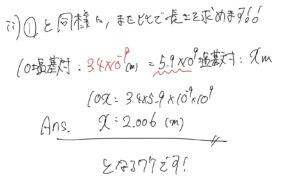 ii) ①と同様に、また比で長さを求めます!!
10塩基対：3.4×10⁻⁹(m) = 5.9×10⁹塩基対：x m
10x = 3.4×5.9×10⁻⁹×10⁹
Ans. x = 2.006 (m)
となるワケです!